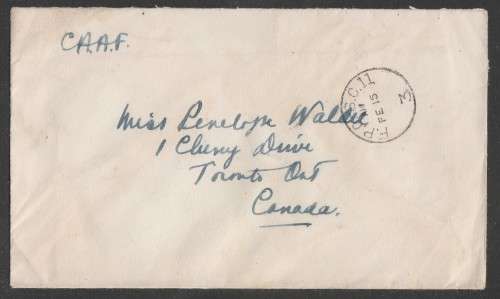 C.A.A.F.
F.P.O. S.C. 11
AM
FE 15
3
Miss Penelope Waldie
1 Cluny Drive
Toronto Ont
Canada.